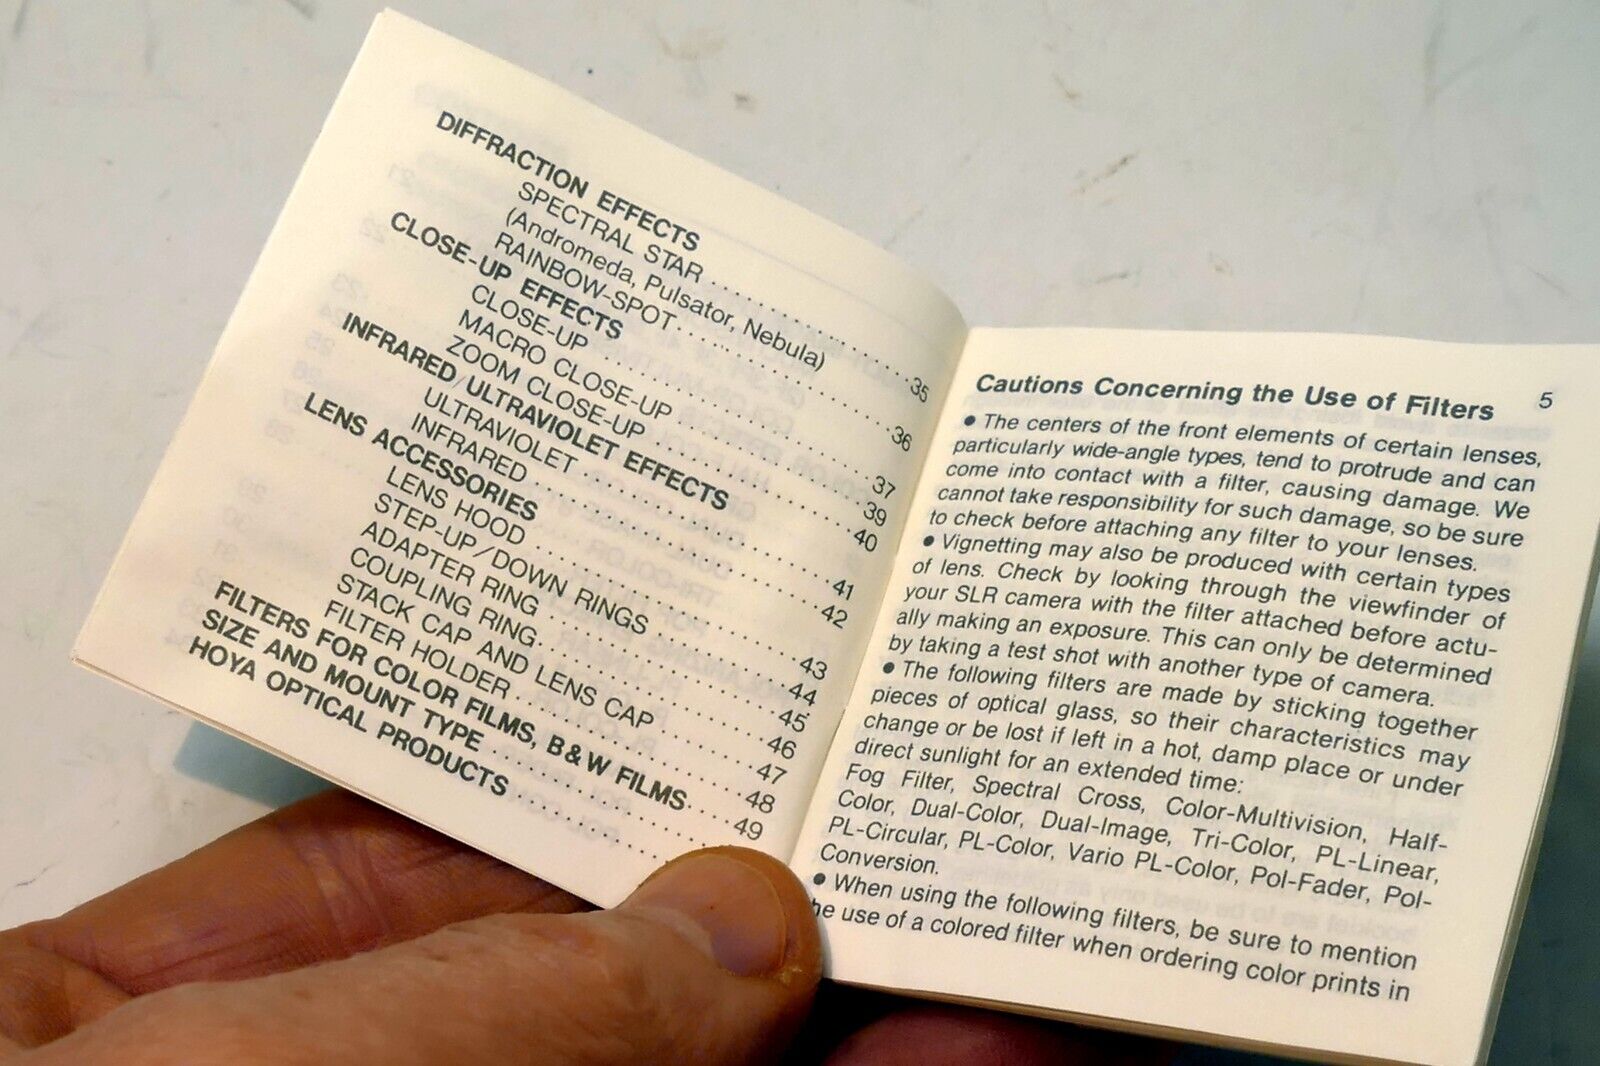 DIFFRACTION EFFECTS
SPECTRAL STAR ..................35
(Andromeda, Pulsator, Nebula)
RAINBOW-SPOT..................36
CLOSE-UP EFFECTS
CLOSE-UP ..................37
MACRO CLOSE-UP ..................39
ZOOM CLOSE-UP ..................40
INFRARED/ULTRAVIOLET EFFECTS
ULTRAVIOLET ..................41
INFRARED ..................42
LENS ACCESSORIES
LENS HOOD ..................43
STEP-UP/DOWN RINGS ..................44
ADAPTER RING ..................45
COUPLING RING..................46
STACK CAP AND LENS CAP ..................47
FILTER HOLDER ..................48
FILTERS FOR COLOR FILMS, B&W FILMS.....49
SIZE AND MOUNT TYPE ..................
HOYA OPTICAL PRODUCTS ..................
5
Cautions Concerning the Use of Filters
● The centers of the front elements of certain lenses,
particularly wide-angle types, tend to protrude and can
come into contact with a filter, causing damage. We
cannot take responsibility for such damage, so be sure
to check before attaching any filter to your lenses.
● Vignetting may also be produced with certain types
of lens. Check by looking through the viewfinder of
your SLR camera with the filter attached before actu-
ally making an exposure. This can only be determined
by taking a test shot with another type of camera.
● The following filters are made by sticking together
pieces of optical glass, so their characteristics may
change or be lost if left in a hot, damp place or under
direct sunlight for an extended time:
Fog Filter, Spectral Cross, Color-Multivision, Half-
Color, Dual-Color, Dual-Image, Tri-Color, PL-Linear,
PL-Circular, PL-Color, Vario PL-Color, Pol-Fader, Pol-
Conversion.
● When using the following filters, be sure to mention
he use of a colored filter when ordering color prints in